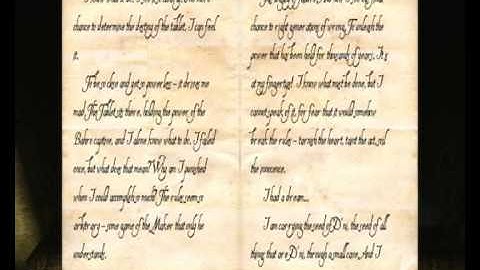 chance to determine the destiny of the tablet, I can feel
it.
To be so close and yet so powerless – it drives me
mad. The Tablet sits there, holding the power, of the
Bahro captive, and I alone know what to do. I failed
once, but what does that mean? Why am I punished
when I could accomplish so much? The rules seem so
arbitrary – some game of the Maker that only he
understands.
chance to right generations of wrong. To unleash the
power that has been held for thousands of years. It is
at my fingertips! I know what must be done, but I
cannot speak of it, for fear that it would somehow
break the rules – tarnish the heart, taint the act, end
the innocence.
I had a dream...
I am carrying the seed of D'ni, the seed of all
thing that are D'ni, through a small cave. And I